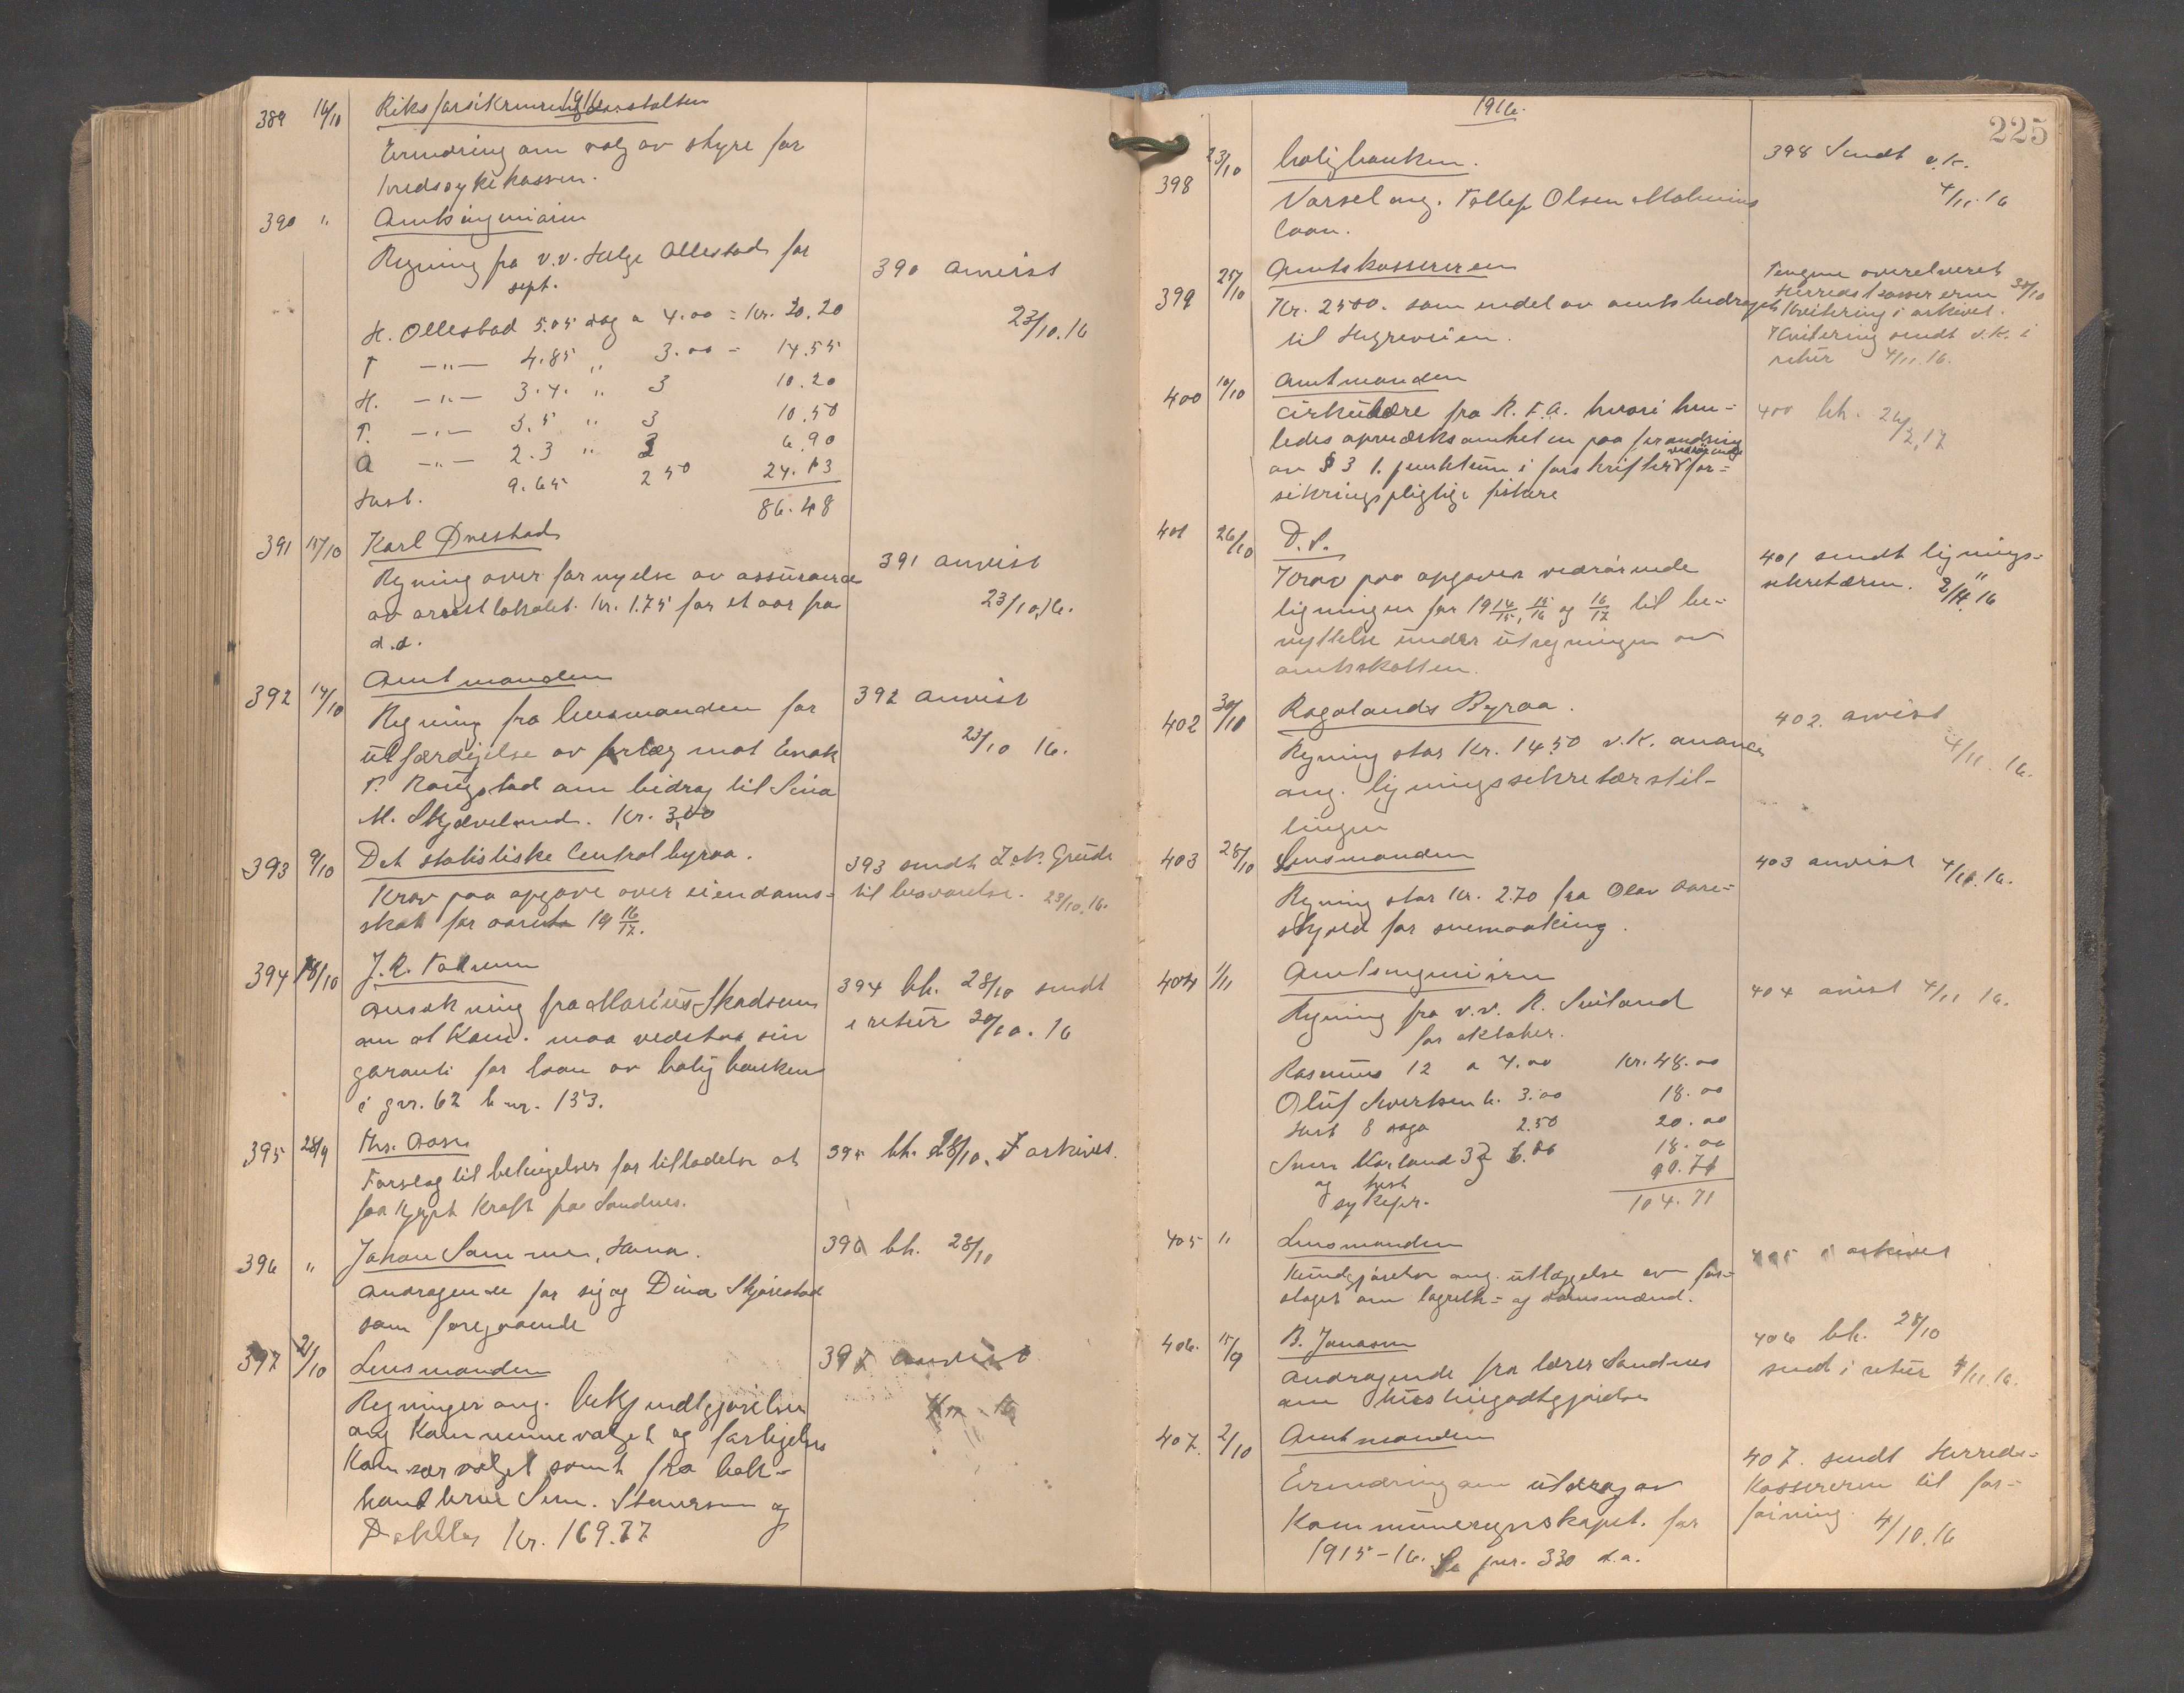 1916.
389 16/10 Riksforsikringsanstalten
Erindring om valg av styre for
kredssykekassen.
390 " Amtsingeniøren
Regning fra v.v. Helge Ollestad for
sept.
H. Ollestad 5.05 dag a 4.00 = Kr. 20.20
T —"— 4.85 " 3.00 = 14.55
H. —"— 3.4. " 3 10.20
T. —"— 3.5 " 3 10.50
A —"— 2.3 " 3 6.90
Hest. 9.65 2 50 24.13
86.48
390 anvist
23/10.16
391 17/10 Karl Øvestad
Regning over fornyelse av assurance
av arrestlokalet. Kr. 1.75 for et aar fra
d.d.
391 anvist
23/10.16.
392 14/10 Amtmanden
Regning fra lensmanden for
utfærdigelse av forlæg mot Enok
T. Raugstad om bidrag til Sina
M. Skjæveland. Kr. 3,00
392 anvist
23/10 16.
393 9/10 Det statistiske Centralbyraa.
Krav paa opgave over eiendoms-
skat for aaret 19 16/17.
393 sendt Grude
til besvarelse. 23/10.16.
394 18/10 J. R.
Ansøkning fra Marius Skadsem
om at Kom. maa vedstaa sin
garanti for laan av boligbanken
i gnr. 62 b-nr. 133.
394 bh. 28/10 sendt
i retur 30/10.16
395 28/9 Ths. Aase
Forslag til betingelser for tilladelse at
faa kjøpt kraft fra Sandnes.
395 bh. 28/10. I arkivet.
396 " Johan Sømme, Hana.
Andragende for sig og Dina Skjørestad
som foregaaende
396 bh. 28/10
397 21/10 Lensmanden
Regninger ang. bekjendtgjørelser
ang Kommunevalget og
valget samt fra bok-
handlerne Sem. Stenersen og
Kr. 169.77
397 anvist
1916.
225
398 23/10 boligbanken.
Varsel ang. Tollef Olsen Malmins
laan.
398 Sendt v.K.
4/11.16
399 25/10 Amtskassereren
Kr. 2500. som endel av amtsbidraget
til Høgreveien.
Pengene overleveret
Herredskassereren 30/10
Kvitering i arkivet.
Kvitering sendt v.K. i
retur 4/11.16.
400 10/10 Amtmanden
Cirkulære fra R.F.A. hvori hen-
ledes opmærksomheten paa forandring
av § 3 1. punktum i forskrifter vedrørende for-
sikringspligtige fiskere
400 bh. 26/2.17
401 26/10 D. S.
Krav paa opgaver vedrørende
ligningen for 19 14/15, 15/16 og 16/17 til be-
nyttelse under utregningen av
amtsskatten.
401 sendt lignings-
sekretæren. 2/11 16
402 30/10 Rogalands Byraa.
Regning stor Kr. 14.50 v.K. anonce
ang. ligningssekretærstil-
lingen
402. anvist
4/11.16.
403 28/10 Lensmanden
Regning stor Kr. 2.70 fra Olav Aare-
skjold for snemaaking.
403 anvist 4/11.16.
404 1/11 Amtsingeniøren
Regning fra v.v. R. Sviland
for oktober.
Rasmus 12 a 4.00 Kr. 48.00
Oluf Sivertsen 6. 3.00 18.00
Hest 8 dage 2.50 20.00
Sven Horland 3 6.00 18.00
og hest
sykepr.
104.71
404 anvist 4/11 16.
405 " Lensmanden
Kundgjørelse ang. utlæggelse av for-
slaget om lagrett- og domsmænd.
405 i arkivet
406. 15/9 B. Jonassen
Andragende fra lærer Sandnes
om husleiegodtgjørelse
406 bh. 28/10
sendt i retur 4/11.16.
407. 2/10 Amtmanden
Erindring om utdrag av
Kommuneregnskapet. for
1915-16. Se jnr. 330 d.a.
407. sendt Herreds-
Kassereren til for-
føining. 4/10.16